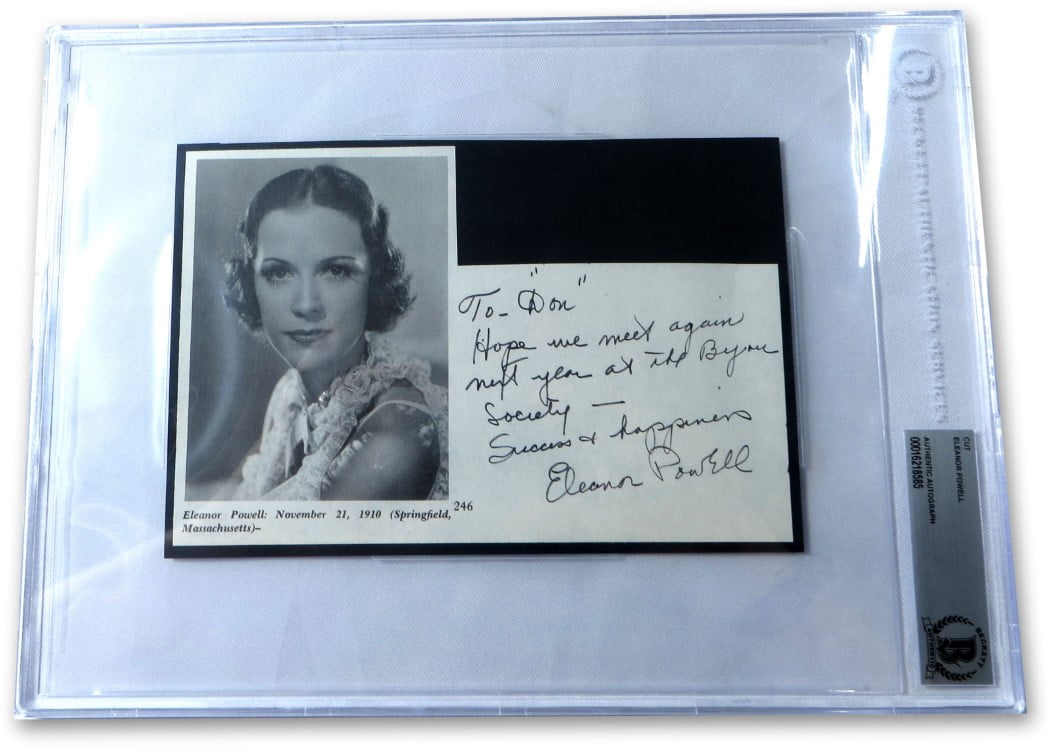 To - "Don"
Hope we meet again
next year at the Bijou
Society —
Success & happiness
Eleanor Powell
246
Eleanor Powell: November 21, 1910 (Springfield,
Massachusetts)–
BECKETT AUTHENTICATION SERVICES
CUT
ELEANOR POWELL
AUTHENTIC AUTOGRAPH
00016218585
BECKETT
B
AUTHENTIC